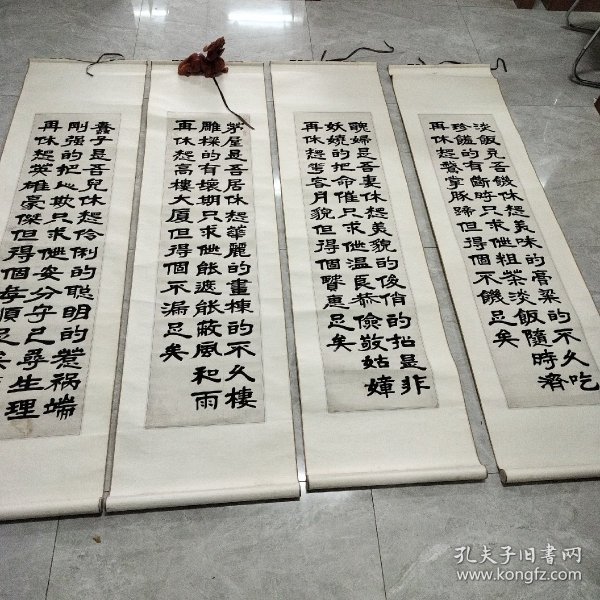 淡飯充吾饑休想美味的膏梁的不久吃
珍饈的有斷時只求他粗茶淡飯隨時濟
再休想鱉掌豚蹄但得個不饑足矣
醜婦是吾妻休想美貌的俊俏的招是非
妖嬈的把命催只求他溫良恭儉敬姑嫜
再休想花容月貌但得個賢惠足矣
茅屋是吾居休想華麗的畫棟的不久棲
雕樑的有壞期只求他能遮能蔽風和雨
再休想高樓大廈但得個不漏足矣
蠢子是吾兒休想伶俐的聰明的惹禍端
剛强的把欺只求他安分守己尋生理
再休想英雄豪傑但得個孝順足矣
孔夫子旧书网
www.kongfz.com